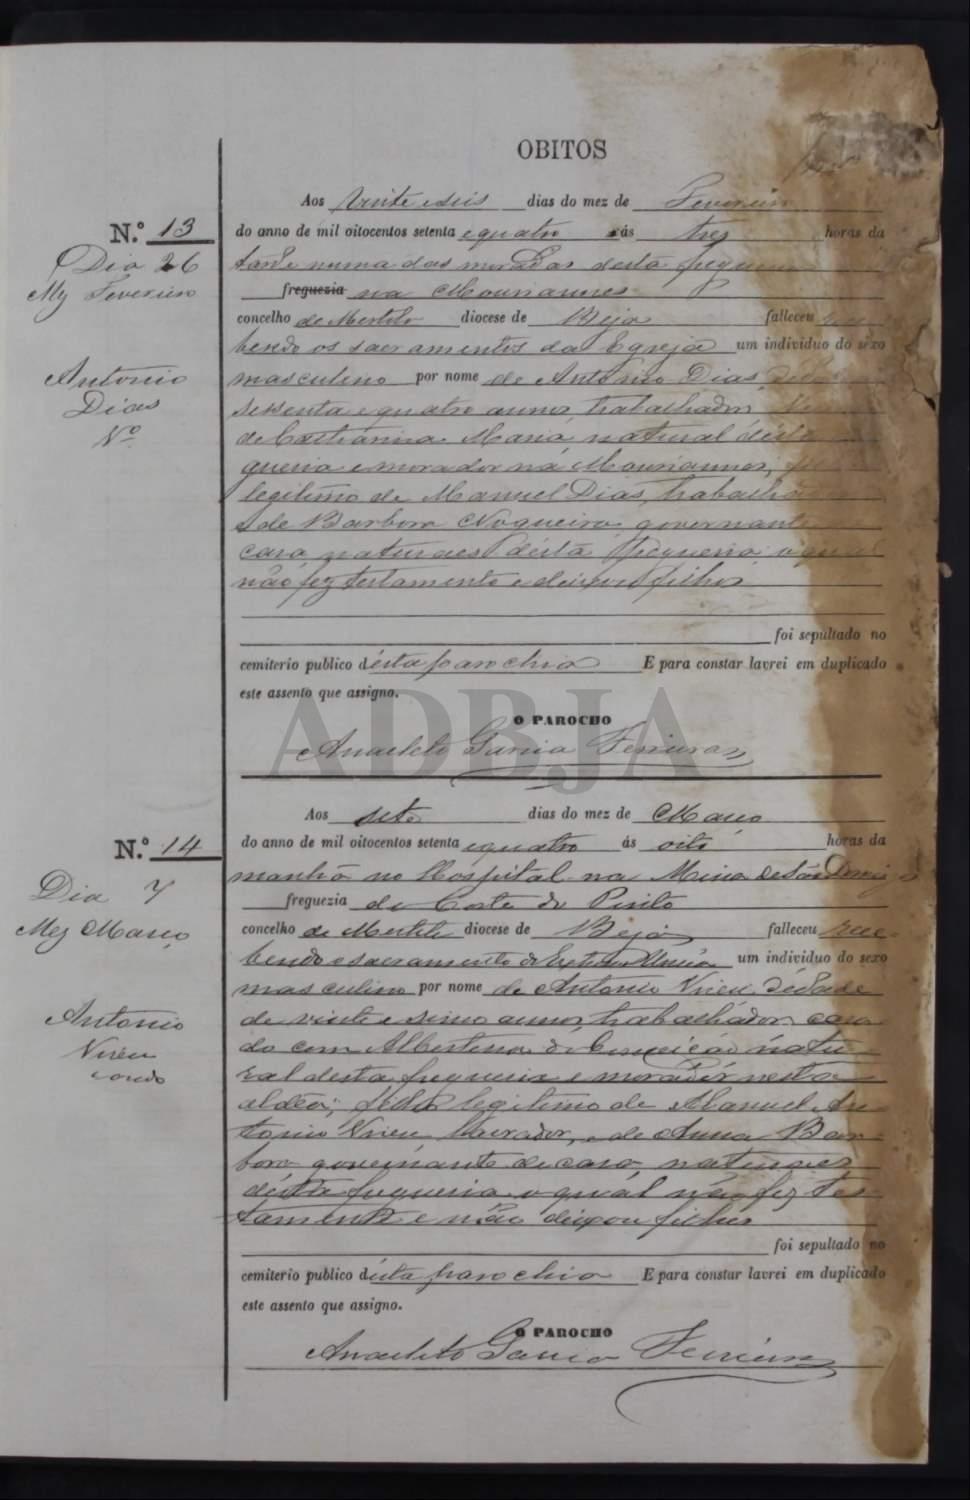 OBITOS
N.º 13
Dia 26
Mez Fevereiro
Antonio
Dias
Vº
Aos vinte e seis dias do mez de Fevereiro
do anno de mil oitocentos setenta e quatro ás tres horas da
tarde numa das moradas desta
freguezia na Mouriannes
concelho de Mertola diocese de Beja falleceu rece
bendo os sacramentos da Egreja um individuo do sexo
masculino por nome de Antonio Dias,
sessenta e quatro annos, trabalhador,
de Maria, natural désta
gueria e morador na Mouriannes,
legitimo de Manuel Dias,
e de Barbora Nogueira, governante
casa, naturaes désta fregueria, o qual
não fez testamento e deixou filhos
foi sepultado no
cemiterio publico d'ésta parochia E para constar lavrei em duplicado
este assento que assigno.
O PAROCHO
Anacleto Garcia Ferreira
ADBJA
N.º 14
Dia 7
Mez Março
Antonio
Vireu
Aos sete dias do mez de Março
do anno de mil oitocentos setenta e quatro ás oito horas da
manhã no Hospital na Mina de São Doming
freguezia de Corte do Pinto
concelho de Mertola diocese de Beja falleceu rece
bendo o sacramento da Extrema Unção um individuo do sexo
masculino por nome de Antonio Vireu, d'édade
de vinte e sinco annos, trabalhador, casa
do com Albertina da Conceição natu
ral desta fregueria e morador nesta
aldêa; filho legitimo de Manuel An
tonio Vireu, e de Anna Bar
bora governante de casa, naturaes
désta fregueria, o qual não fez tes
tamento e não deixou filhos
foi sepultado no
cemiterio publico d'ésta parochia E para constar lavrei em duplicado
este assento que assigno.
O PAROCHO
Anacleto Garcia Ferreira